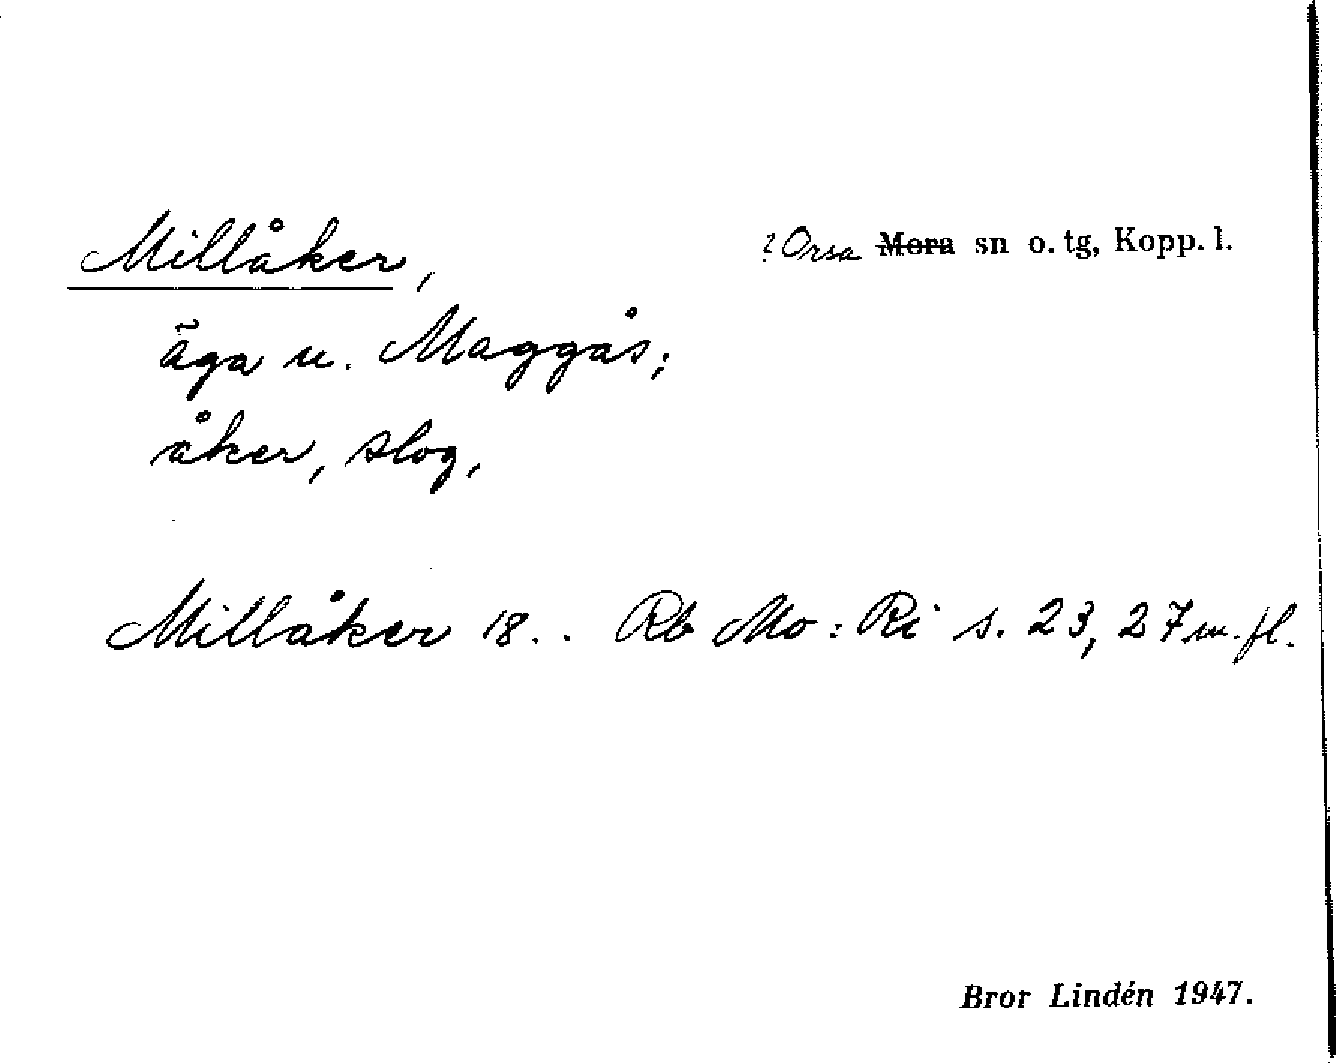 Millåker,
? Orsa Mora sn o. tg, Kopp. l.
äga u. Maggås;
åker, slog,
Millåker 18.. Rb Mo: Ri s. 23, 27 m. fl.
Bror Lindén 1947.